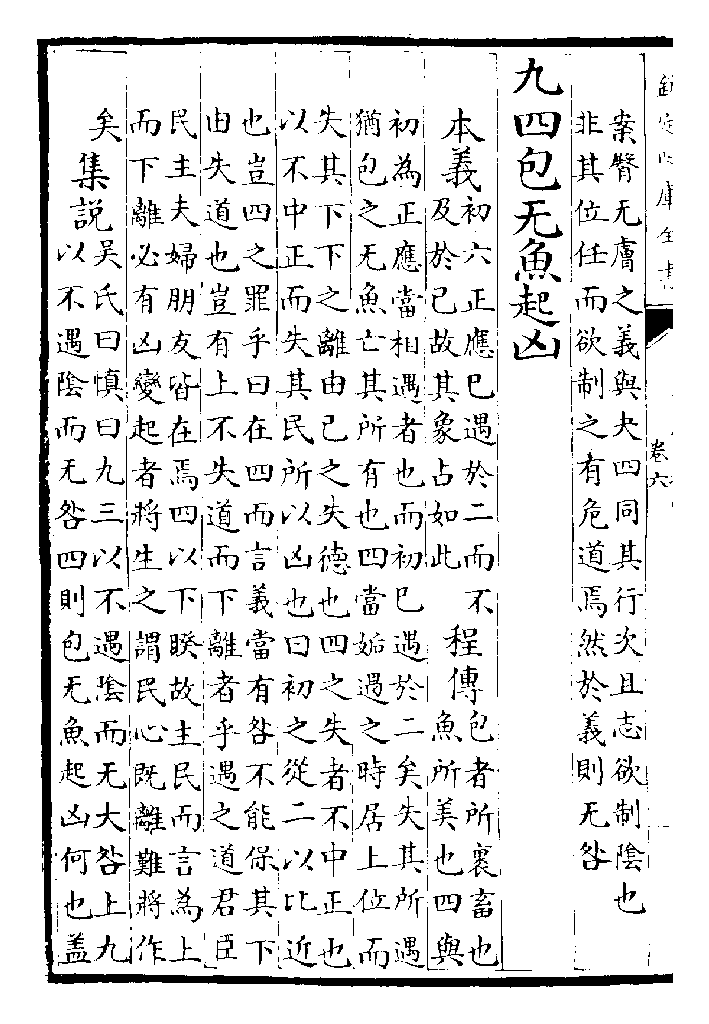 欽定四庫全書
卷六
案臀无膚之義與夬四同其行次且志欲制陰也
非其位任而欲制之有危道焉然於義則无咎
九四包无魚起凶
本義初六正應已遇於二而不
及於已故其象占如此
程傳包者所裹畜也
魚所美也四與
初為正應當相遇者也而初已遇於二矣失其所遇
猶包之无魚亡其所有也四當姤遇之時居上位而
失其下下之離由己之失德也四之失者不中正也
以不中正而失其民所以凶也曰初之從二以比近
也豈四之罪乎曰在四而言義當有咎不能保其下
由失道也豈有上不失道而下離者乎遇之道君臣
民主夫婦朋友皆在焉四以下睽故主民而言為上
而下離必有凶變起者將生之謂民心既離難將作
矣
集説吳氏曰慎曰九三以不遇陰而无大咎上九
以不遇陰而无咎四則包无魚起凶何也蓋